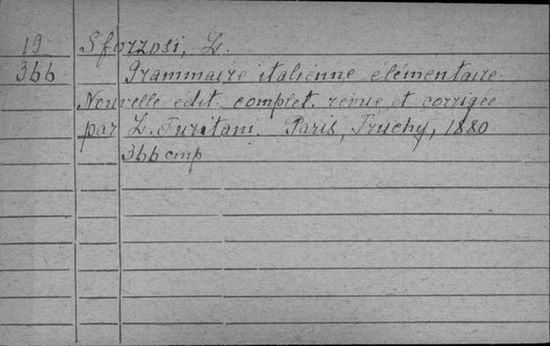 19 Sforzosi, L.
366 Grammaire italienne élémentaire.
Nouvelle édit. complet. revue et corrigée
par L. Furitani. Paris, Truchy, 1880
366 cmp